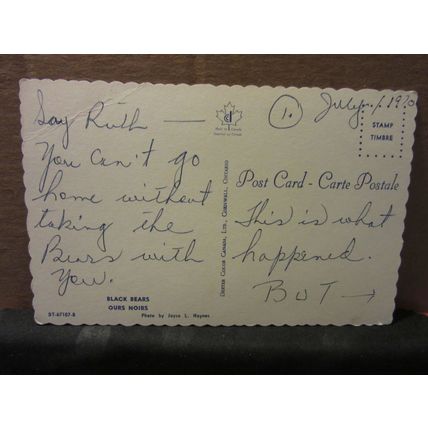 Say Ruth —
You can't go
home without
taking the
Bears with
you.
BLACK BEARS
OURS NOIRS
DT-67107-B
Photo by Joyce L. Haynes
Made in Canada
DEXTER COLOR CANADA, LTD., CORNWALL, ONTARIO
1. July /1970
STAMP
TIMBRE
Post Card - Carte Postale
This is what
happened.
BUT →